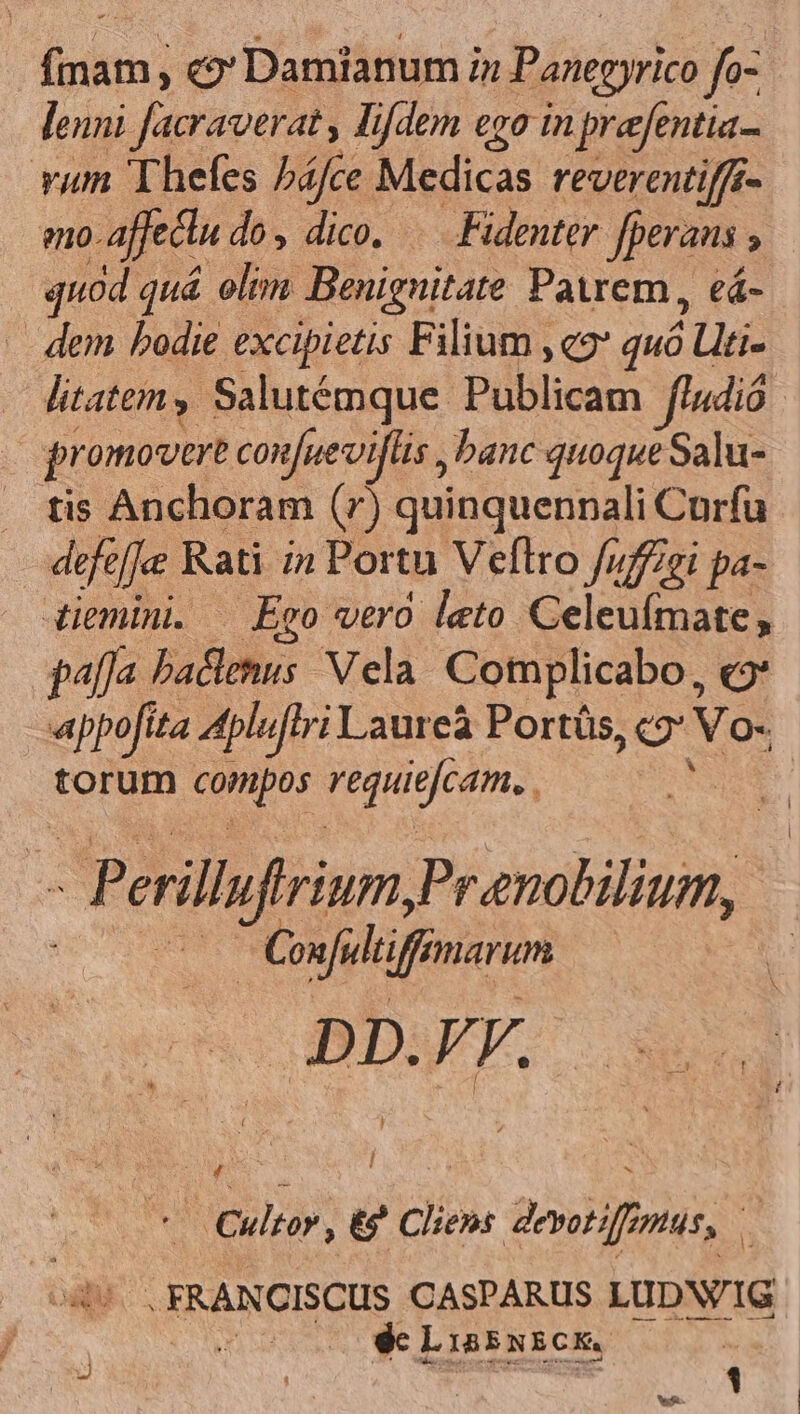 ſmam, & Damianum in Panegyrico ſo-
lenni ſacraverat, Iiſdem ego in præſentia-
rum Theſes háſce Medicas reverentiſſi-
mo affectu do, dico. Fidenter ſperans,
quód quá olim Benignitate Patrem, eá-
dem hodie excipietis Filium, & quó Uti-
litatem, Salutémque Publicam ſtudió
promovere conſueviſtis, hanc quoque Salu-
tis Anchoram (r) quinquennali Curſu
defeſſæ Rati in Portu Veſtro ſuffigi pa-
tiemini. Ego veró læto Celeuſmate,
paſſa hactenus Vela Complicabo, &
appoſita Apluſtri Laureâ Portûs, & Vo-
torum compos requieſcam.
Perilluſtrium, Prænobilium,
Conſultiſſimarum
DD. VV.
Cultor, & Cliens devotiſſimus,
FRANCISCUS CASPARUS LUDWIG
de LISENECK.